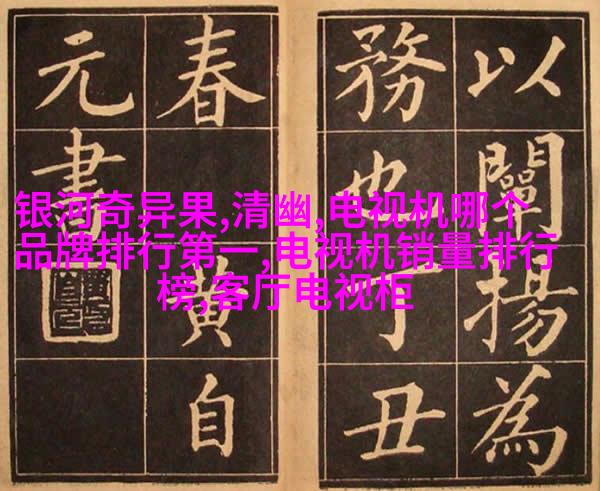 以闡揚為
務也丁丑
春黃自
元書
银河奇异果,清幽,电视机哪个
品牌排行第一,电视机销量排行
榜,客厅电视柜